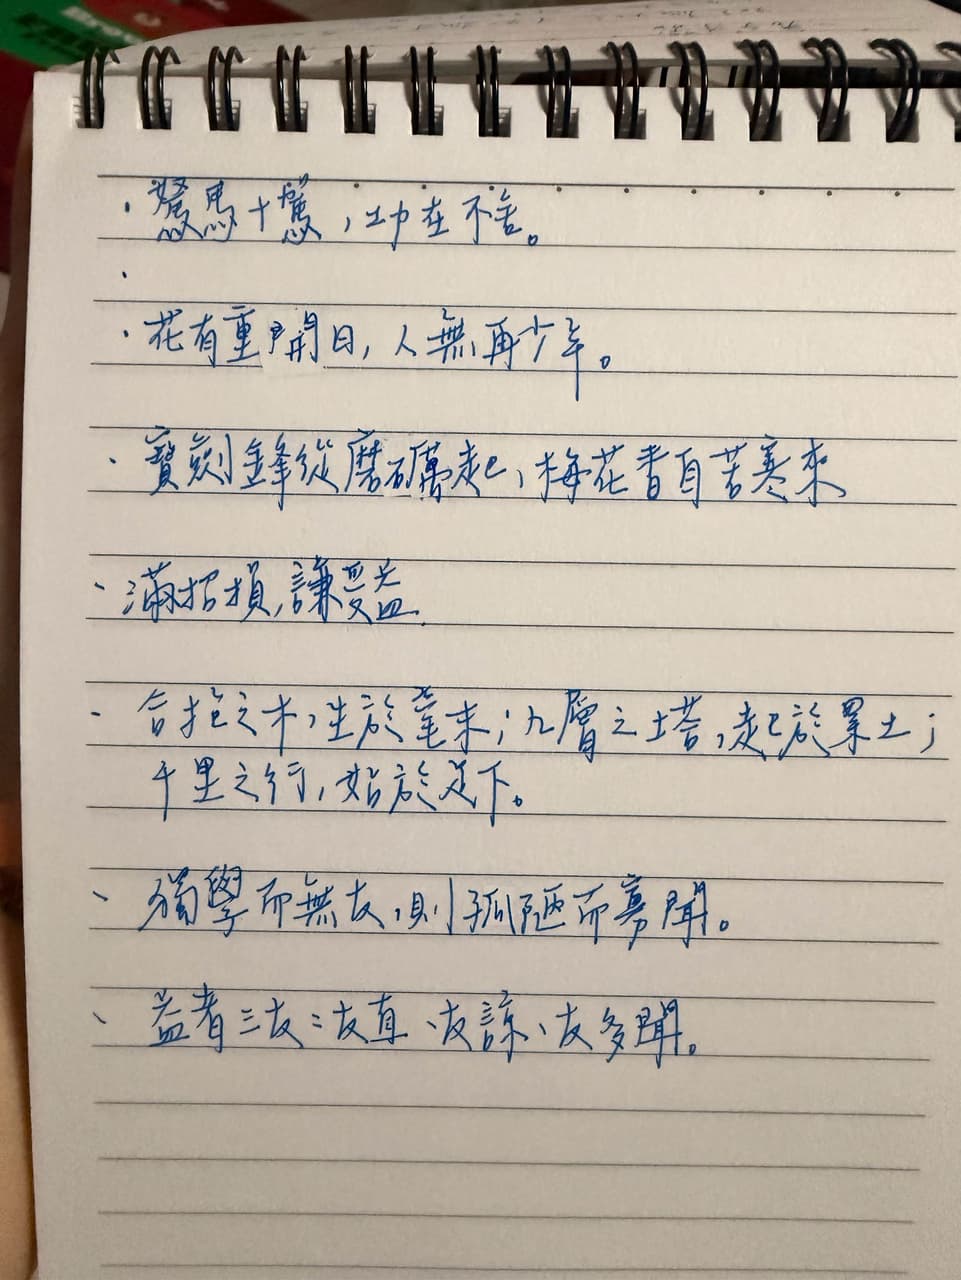 · 駑馬十駕，功在不舍。
·
· 花有重開日，人無再少年。
· 寶劍鋒從磨礪起，梅花香自苦寒來
· 滿招損，謙受益.
· 合抱之木，生於毫末；九層之塔，起於累土；
千里之行，始於足下。
、 獨學而無友，則孤陋而寡聞。
、 益者三友：友直、友諒、友多聞。